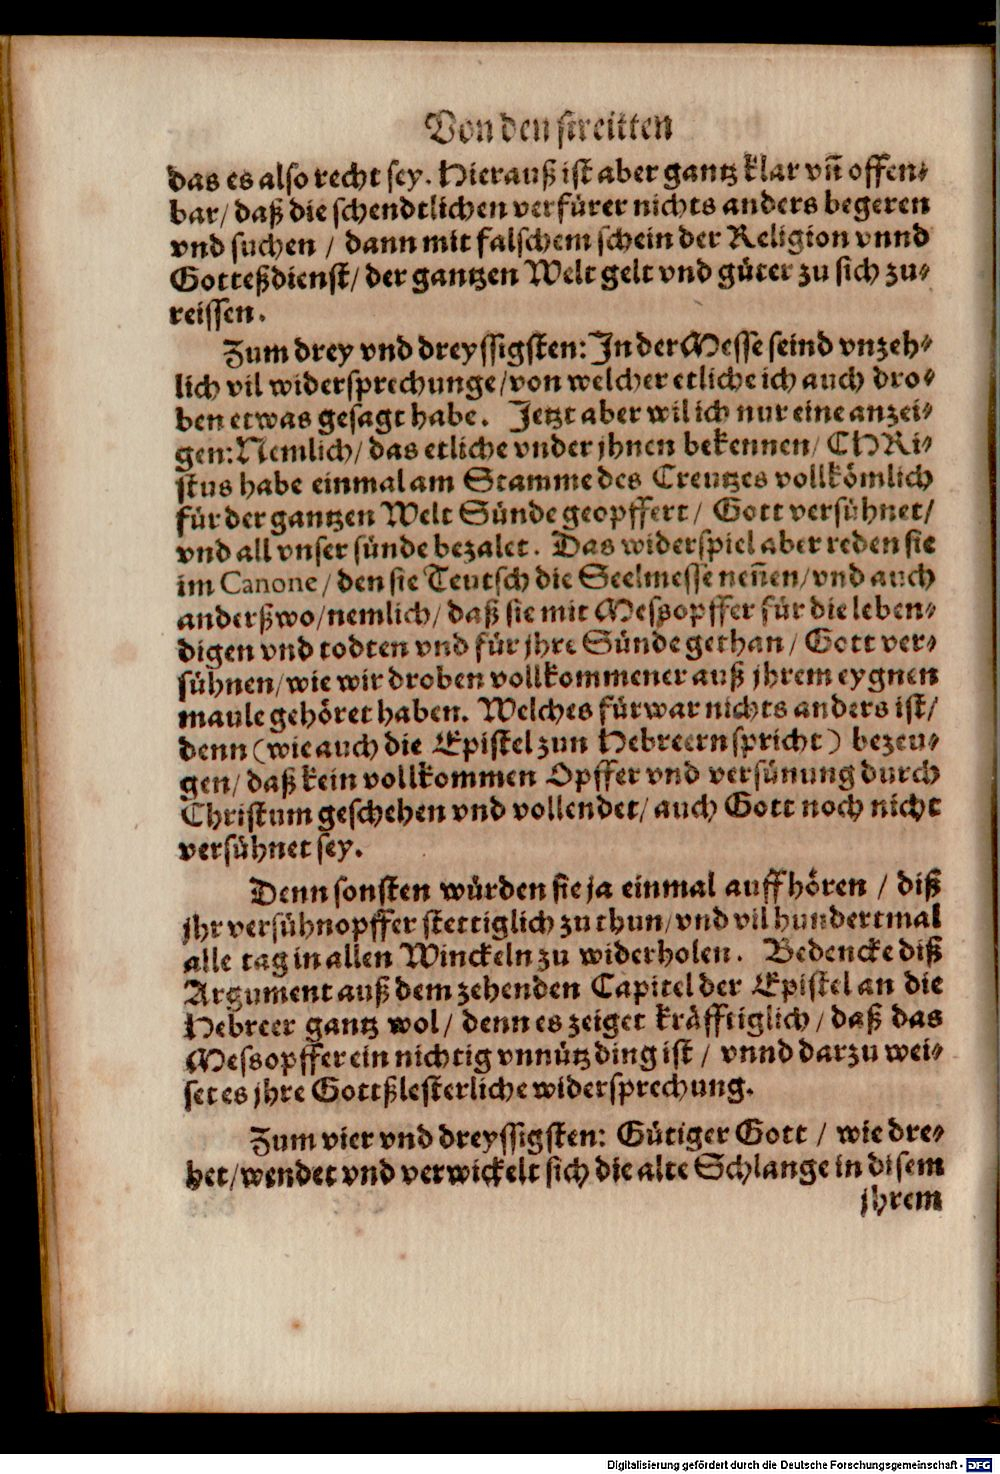 Von den streitten
das es also recht sey. Hierauß ist aber gantz klar vñ offen-
bar/ daß die schendtlichen verfürer nichts anders begeren
vnd suchen / dann mit falschem schein der Religion vnnd
Gotteßdienst/ der gantzen Welt gelt vnd güter zu sich zu-
reissen.
Zum drey vnd dreyssigsten: In der Messe seind vnzeh-
lich vil widersprechunge/ von welcher etliche ich auch dro-
ben etwas gesagt habe. Jetzt aber wil ich nur eine anzei-
gen: Nemlich/ das etliche vnder jhnen bekennen/ CHRi-
stus habe einmal am Stamme des Creutzes vollkömlich
für der gantzen Welt Sünde geopffert/ Gott versühnet/
vnd all vnser sünde bezalet. Das widerspiel aber reden sie
im Canone/ den sie Teutsch die Seelmesse neñen/ vnd auch
anderßwo/ nemlich/ daß sie mit Messopffer für die leben-
digen vnd todten vnd für jhre Sünde gethan/ Gott ver-
sühnen/ wie wir droben vollkommener auß jhrem eygnen
maule gehöret haben. Welches fürwar nichts anders ist/
denn (wie auch die Epistel zun Hebreern spricht) bezeu-
gen/ daß kein vollkommen Opffer vnd versünung durch
Christum geschehen vnd vollendet/ auch Gott noch nicht
versühnet sey.
Denn sonsten würden sie ja einmal auffhören / diß
jhr versühnopffer stettiglich zu thun/ vnd vil hundertmal
alle tag in allen Winckeln zu widerholen. Bedencke diß
Argument auß dem zehenden Capitel der Epistel an die
Hebreer gantz wol/ denn es zeiget kräfftiglich/ daß das
Messopffer ein nichtig vnnütz ding ist / vnnd darzu wei-
set es jhre Gottßlesterliche widersprechung.
Zum vier vnd dreyssigsten: Gütiger Gott / wie dre-
het/ wendet vnd verwickelt sich die alte Schlange in disem
jhrem
Digitalisierung gefördert durch die Deutsche Forschungsgemeinschaft - DFG